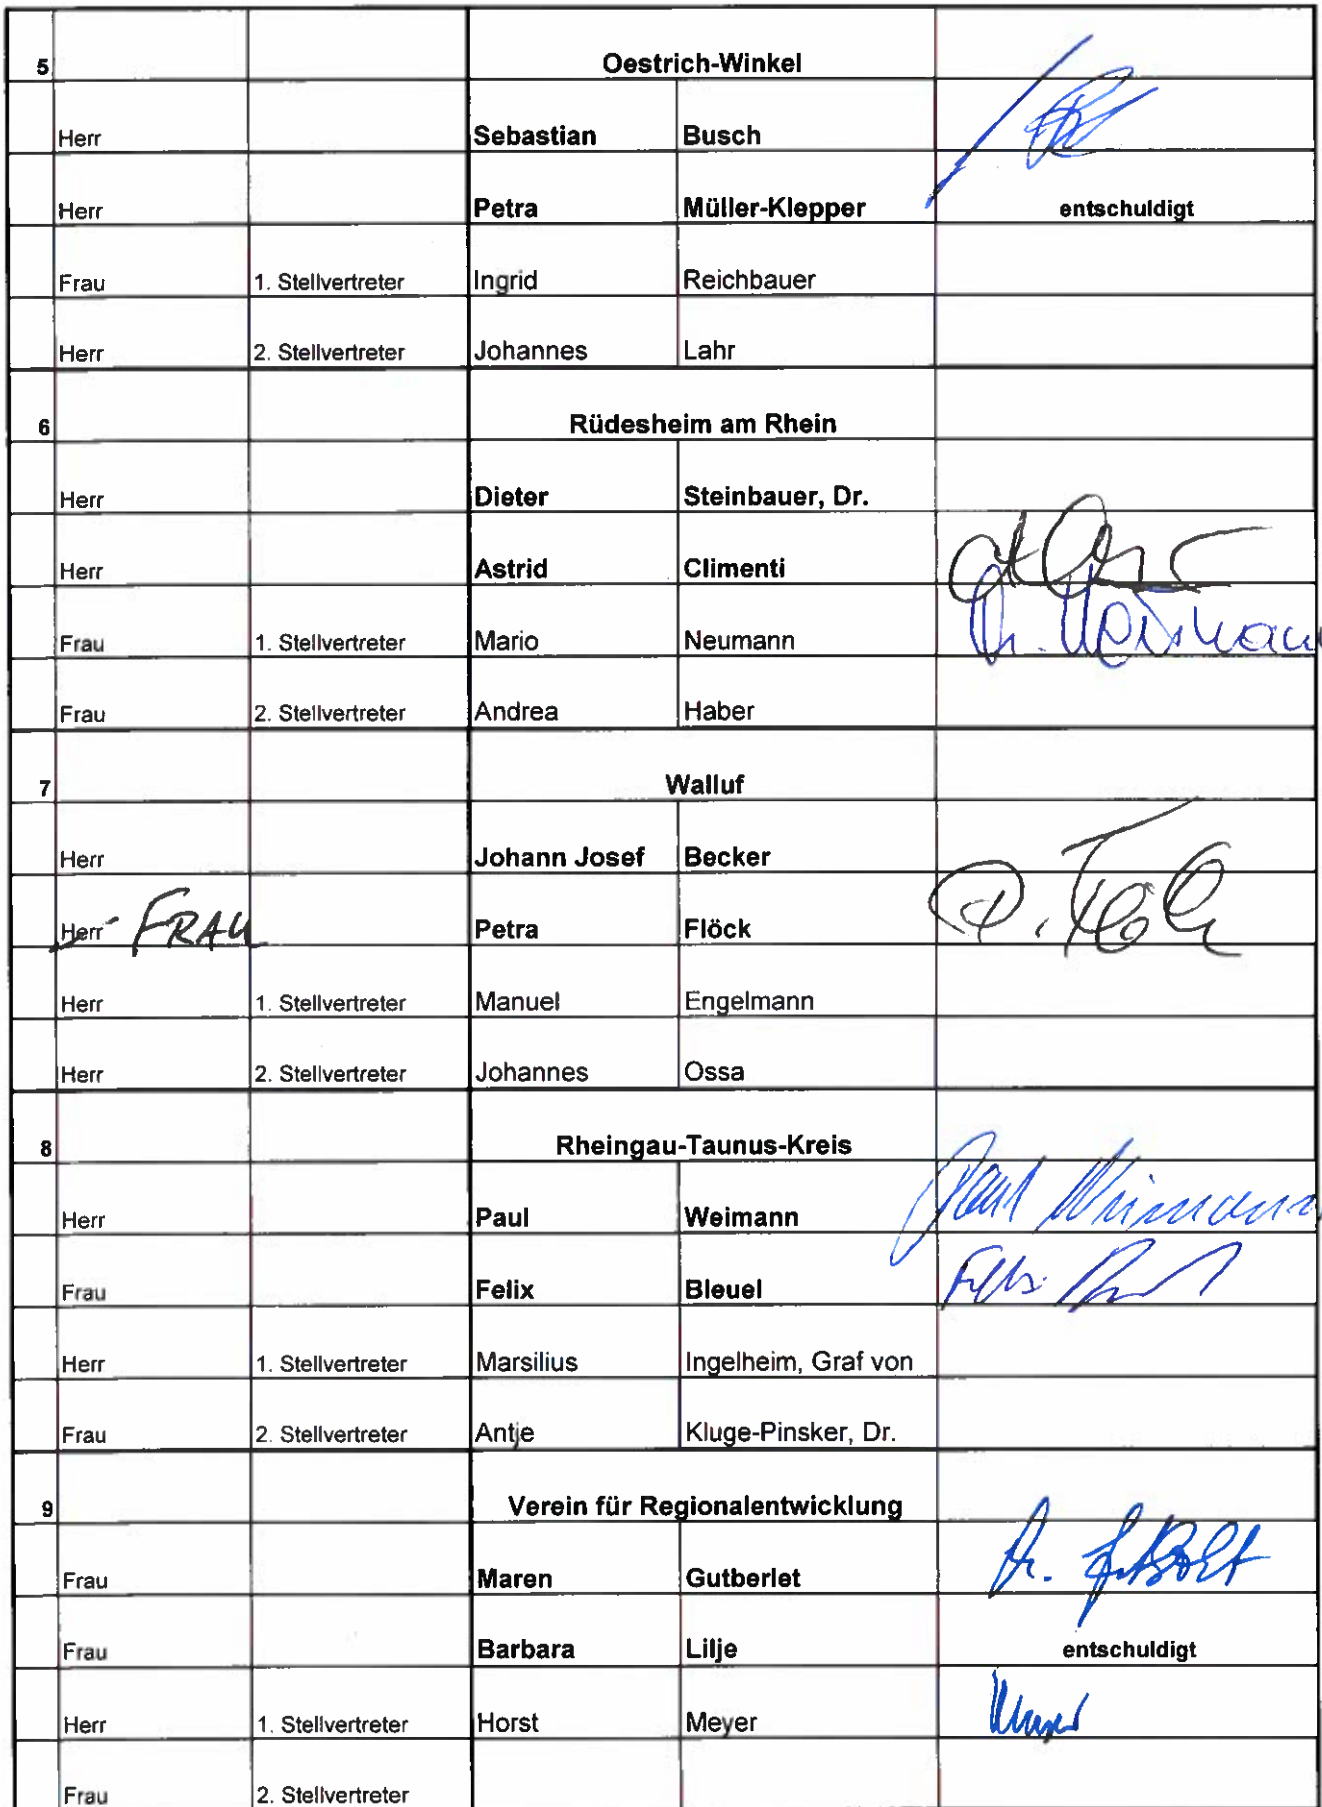 5 Oestrich-Winkel
Herr Sebastian Busch
Herr Petra Müller-Klepper entschuldigt
Frau 1. Stellvertreter Ingrid Reichbauer
Herr 2. Stellvertreter Johannes Lahr
6 Rüdesheim am Rhein
Herr Dieter Steinbauer, Dr.
Herr Astrid Climenti
Frau 1. Stellvertreter Mario Neumann
Frau 2. Stellvertreter Andrea Haber
7 Walluf
Herr Johann Josef Becker
Herr FRAU Petra Flöck P. Flöck
Herr 1. Stellvertreter Manuel Engelmann
Herr 2. Stellvertreter Johannes Ossa
8 Rheingau-Taunus-Kreis
Herr Paul Weimann Paul Weimann
Frau Felix Bleuel Felix
Herr 1. Stellvertreter Marsilius Ingelheim, Graf von
Frau 2. Stellvertreter Antje Kluge-Pinsker, Dr.
9 Verein für Regionalentwicklung
Frau Maren Gutberlet
Frau Barbara Lilje entschuldigt
Herr 1. Stellvertreter Horst Meyer
Frau 2. Stellvertreter